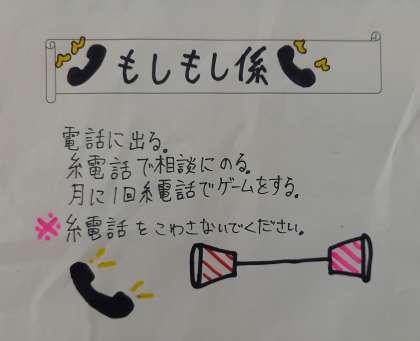 もしもし係
電話に出る。
糸電話で相談にのる。
月に1回糸電話でゲームをする。
※糸電話をこわさないでください。